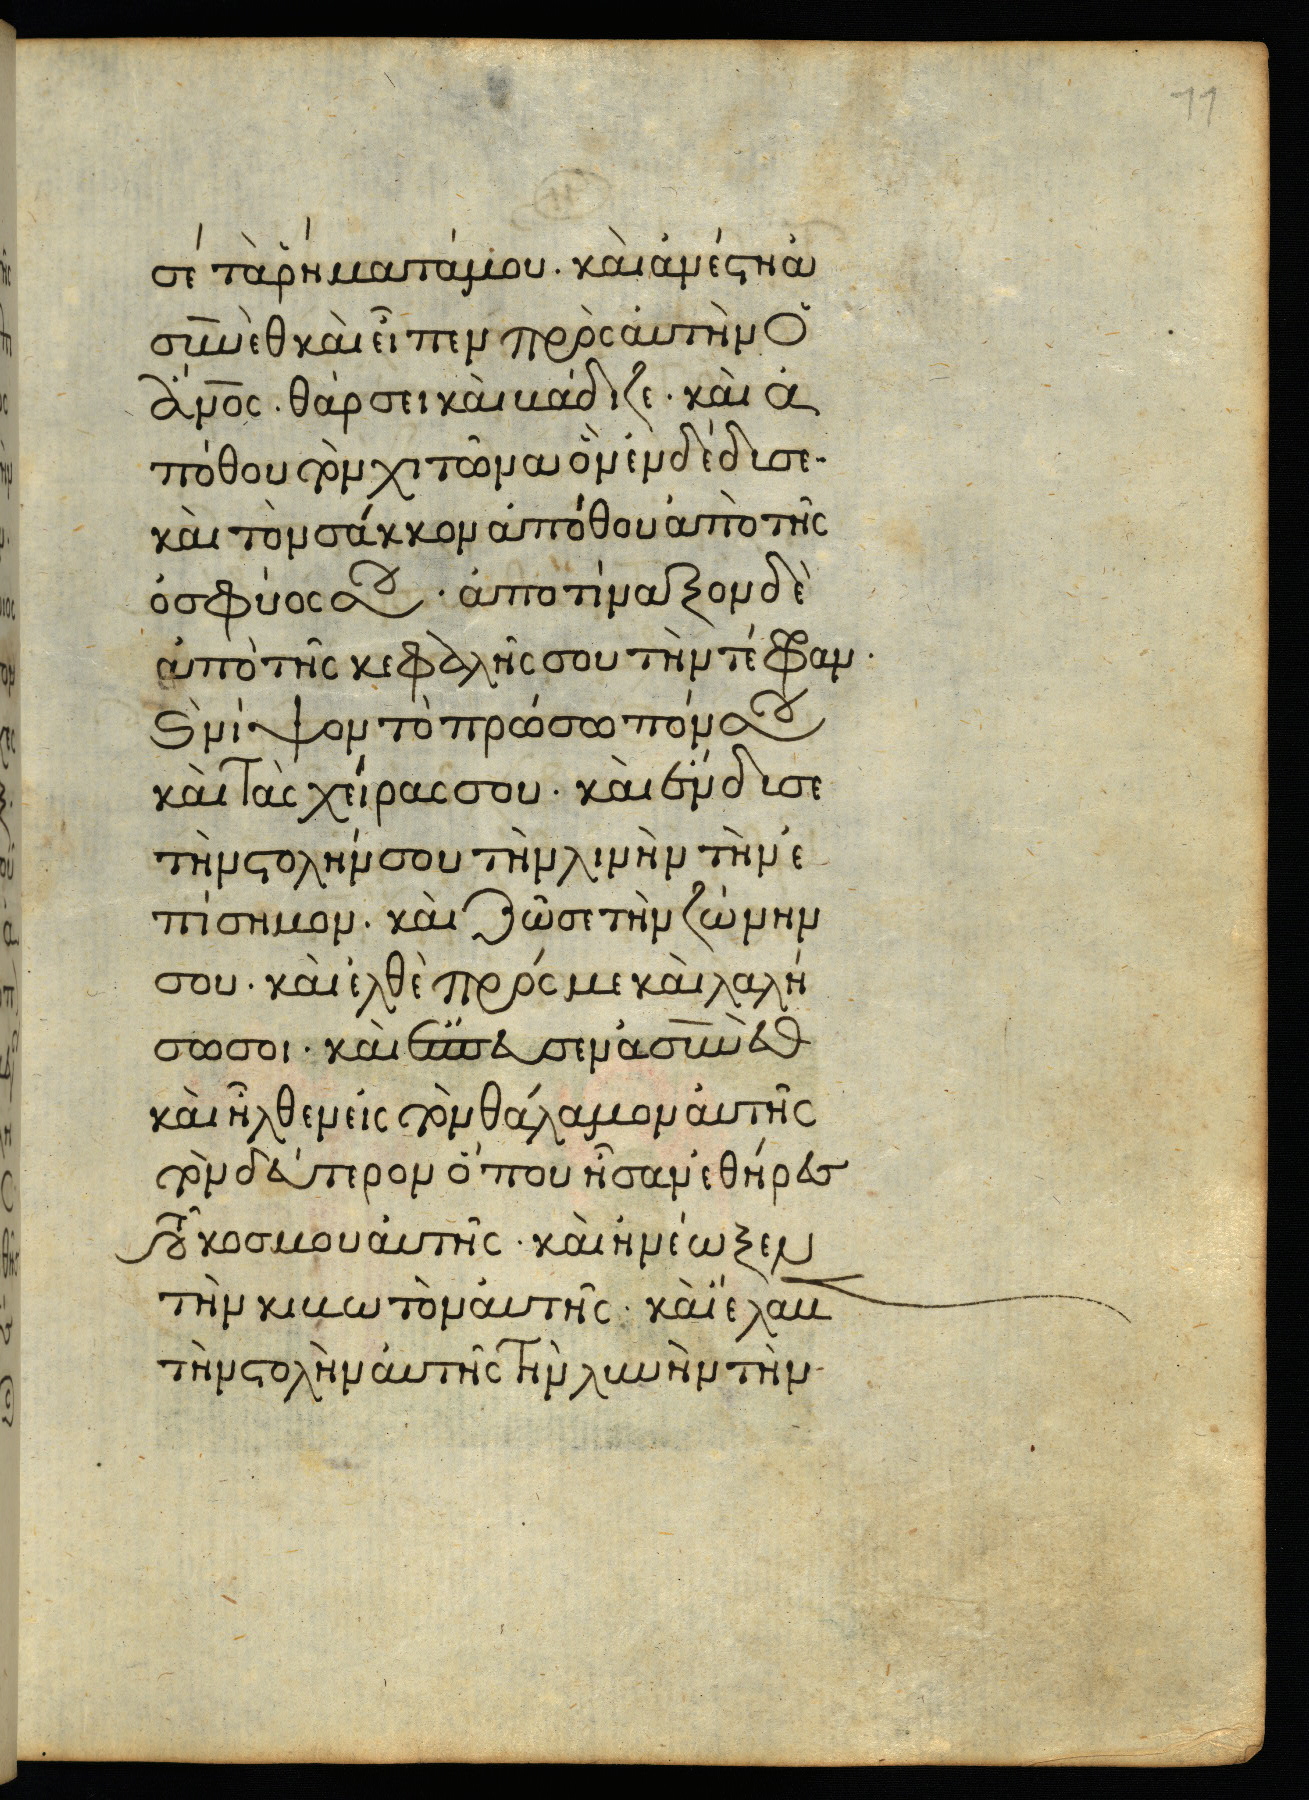 11
σέ τὰ ῥήματά μου · καὶ ἀνέστη ἀ
συνὲθ καὶ εἶπεν πρὸς αὐτὴν ὁ
ἄν̅ο̅ς · θάρσει καὶ κάθιζε · καὶ ἀ
πόθου τὸν χιτῶνα ὃν ἐνδέδισε ·
καὶ τὸν σάκκον ἀπόθου ἀπὸ τῆς
ὀσφύος σου · ἀποτίναξον δὲ
ἀπὸ τῆς κεφαλῆς σου τὴν τέφραν ·
καὶ νίψον τὸ πρώσωπόν σου
καὶ τὰς χείρας σου · καὶ ἔνδισε
τὴν στολήν σου τὴν λινὴν τὴν ἐ
πίσημον · καὶ ζῶσε τὴν ζώνην
σου · καὶ ἐλθὲ πρός με καὶ λαλή
σω σοι · καὶ ἔσπευσεν ἀσυνὲθ
καὶ ἦλθεν εἰς τὸν θάλαμον αὐτῆς
τὸν δεύτερον ὅπου ἦσαν ἐ θήρες
τοῦ κοσμου αὐτῆς · καὶ ἠνέωξεν
τὴν κικωτὸν αὐτῆς · καὶ ἔλαβε
τὴν στολὴν αὐτῆς τὴν λινὴν τὴν